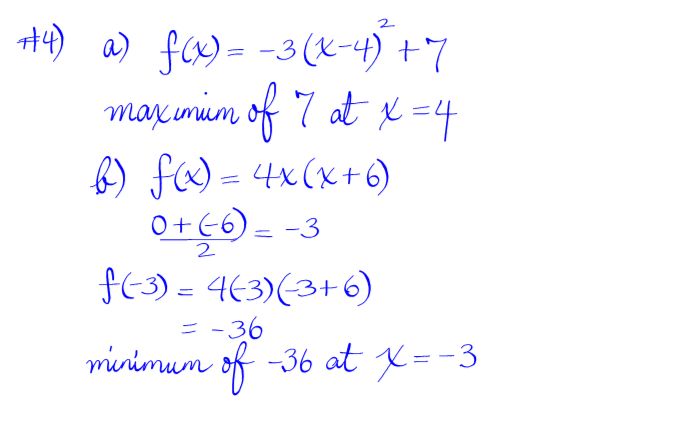 #4) a) f(x) = -3(x-4)² + 7
maximum of 7 at x = 4
b) f(x) = 4x(x+6)
0+(-6)/2 = -3
f(-3) = 4(-3)(-3+6)
= -36
minimum of -36 at x = -3